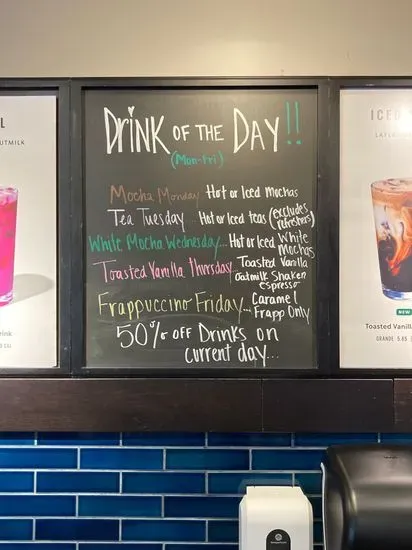 Drink OF THE DAY!!
(Mon-Fri)
Mocha Monday Hot or Iced Mochas
Tea Tuesday... Hot or Iced teas (excludes refreshers)
White Mocha Wednesday... Hot or Iced White Mochas
Toasted Vanilla Thursday... Toasted Vanilla Oatmilk Shaken espresso
Frappuccino Friday... Caramel Frapp Only
50% OFF Drinks on
current day...
L
UTMILK
rink
ICED
NEW
Toasted Vanill
GRANDE 5.65